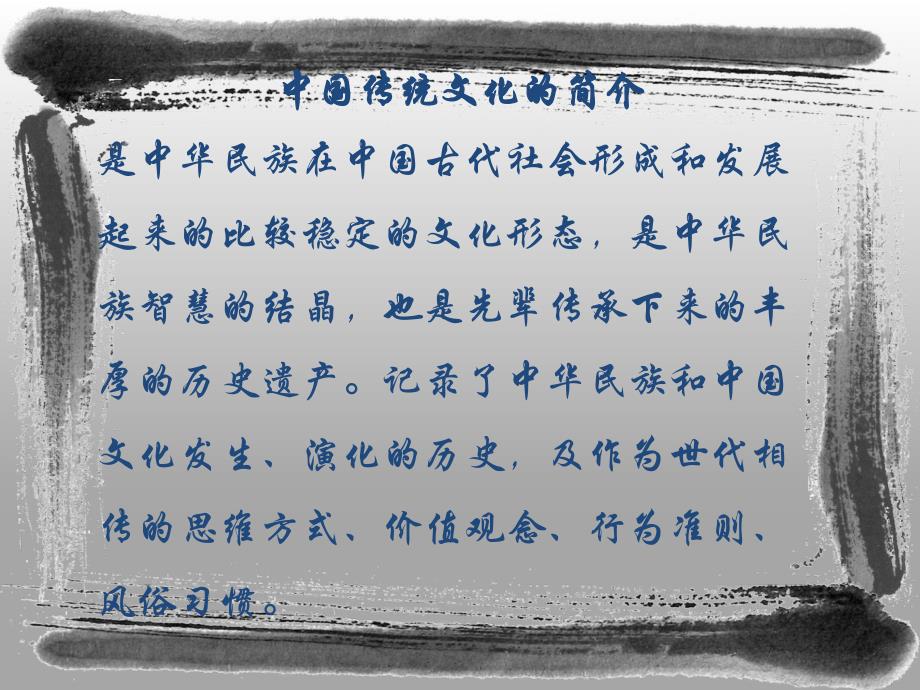 中国传统文化的简介
是中华民族在中国古代社会形成和发展
起来的比较稳定的文化形态，是中华民
族智慧的结晶，也是先辈传承下来的丰
厚的历史遗产。记录了中华民族和中国
文化发生、演化的历史，及作为世代相
传的思维方式、价值观念、行为准则、
风俗习惯。